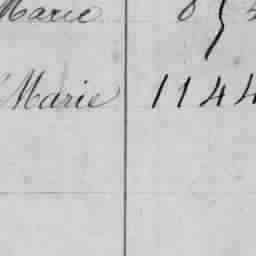 Marie
Marie 1144